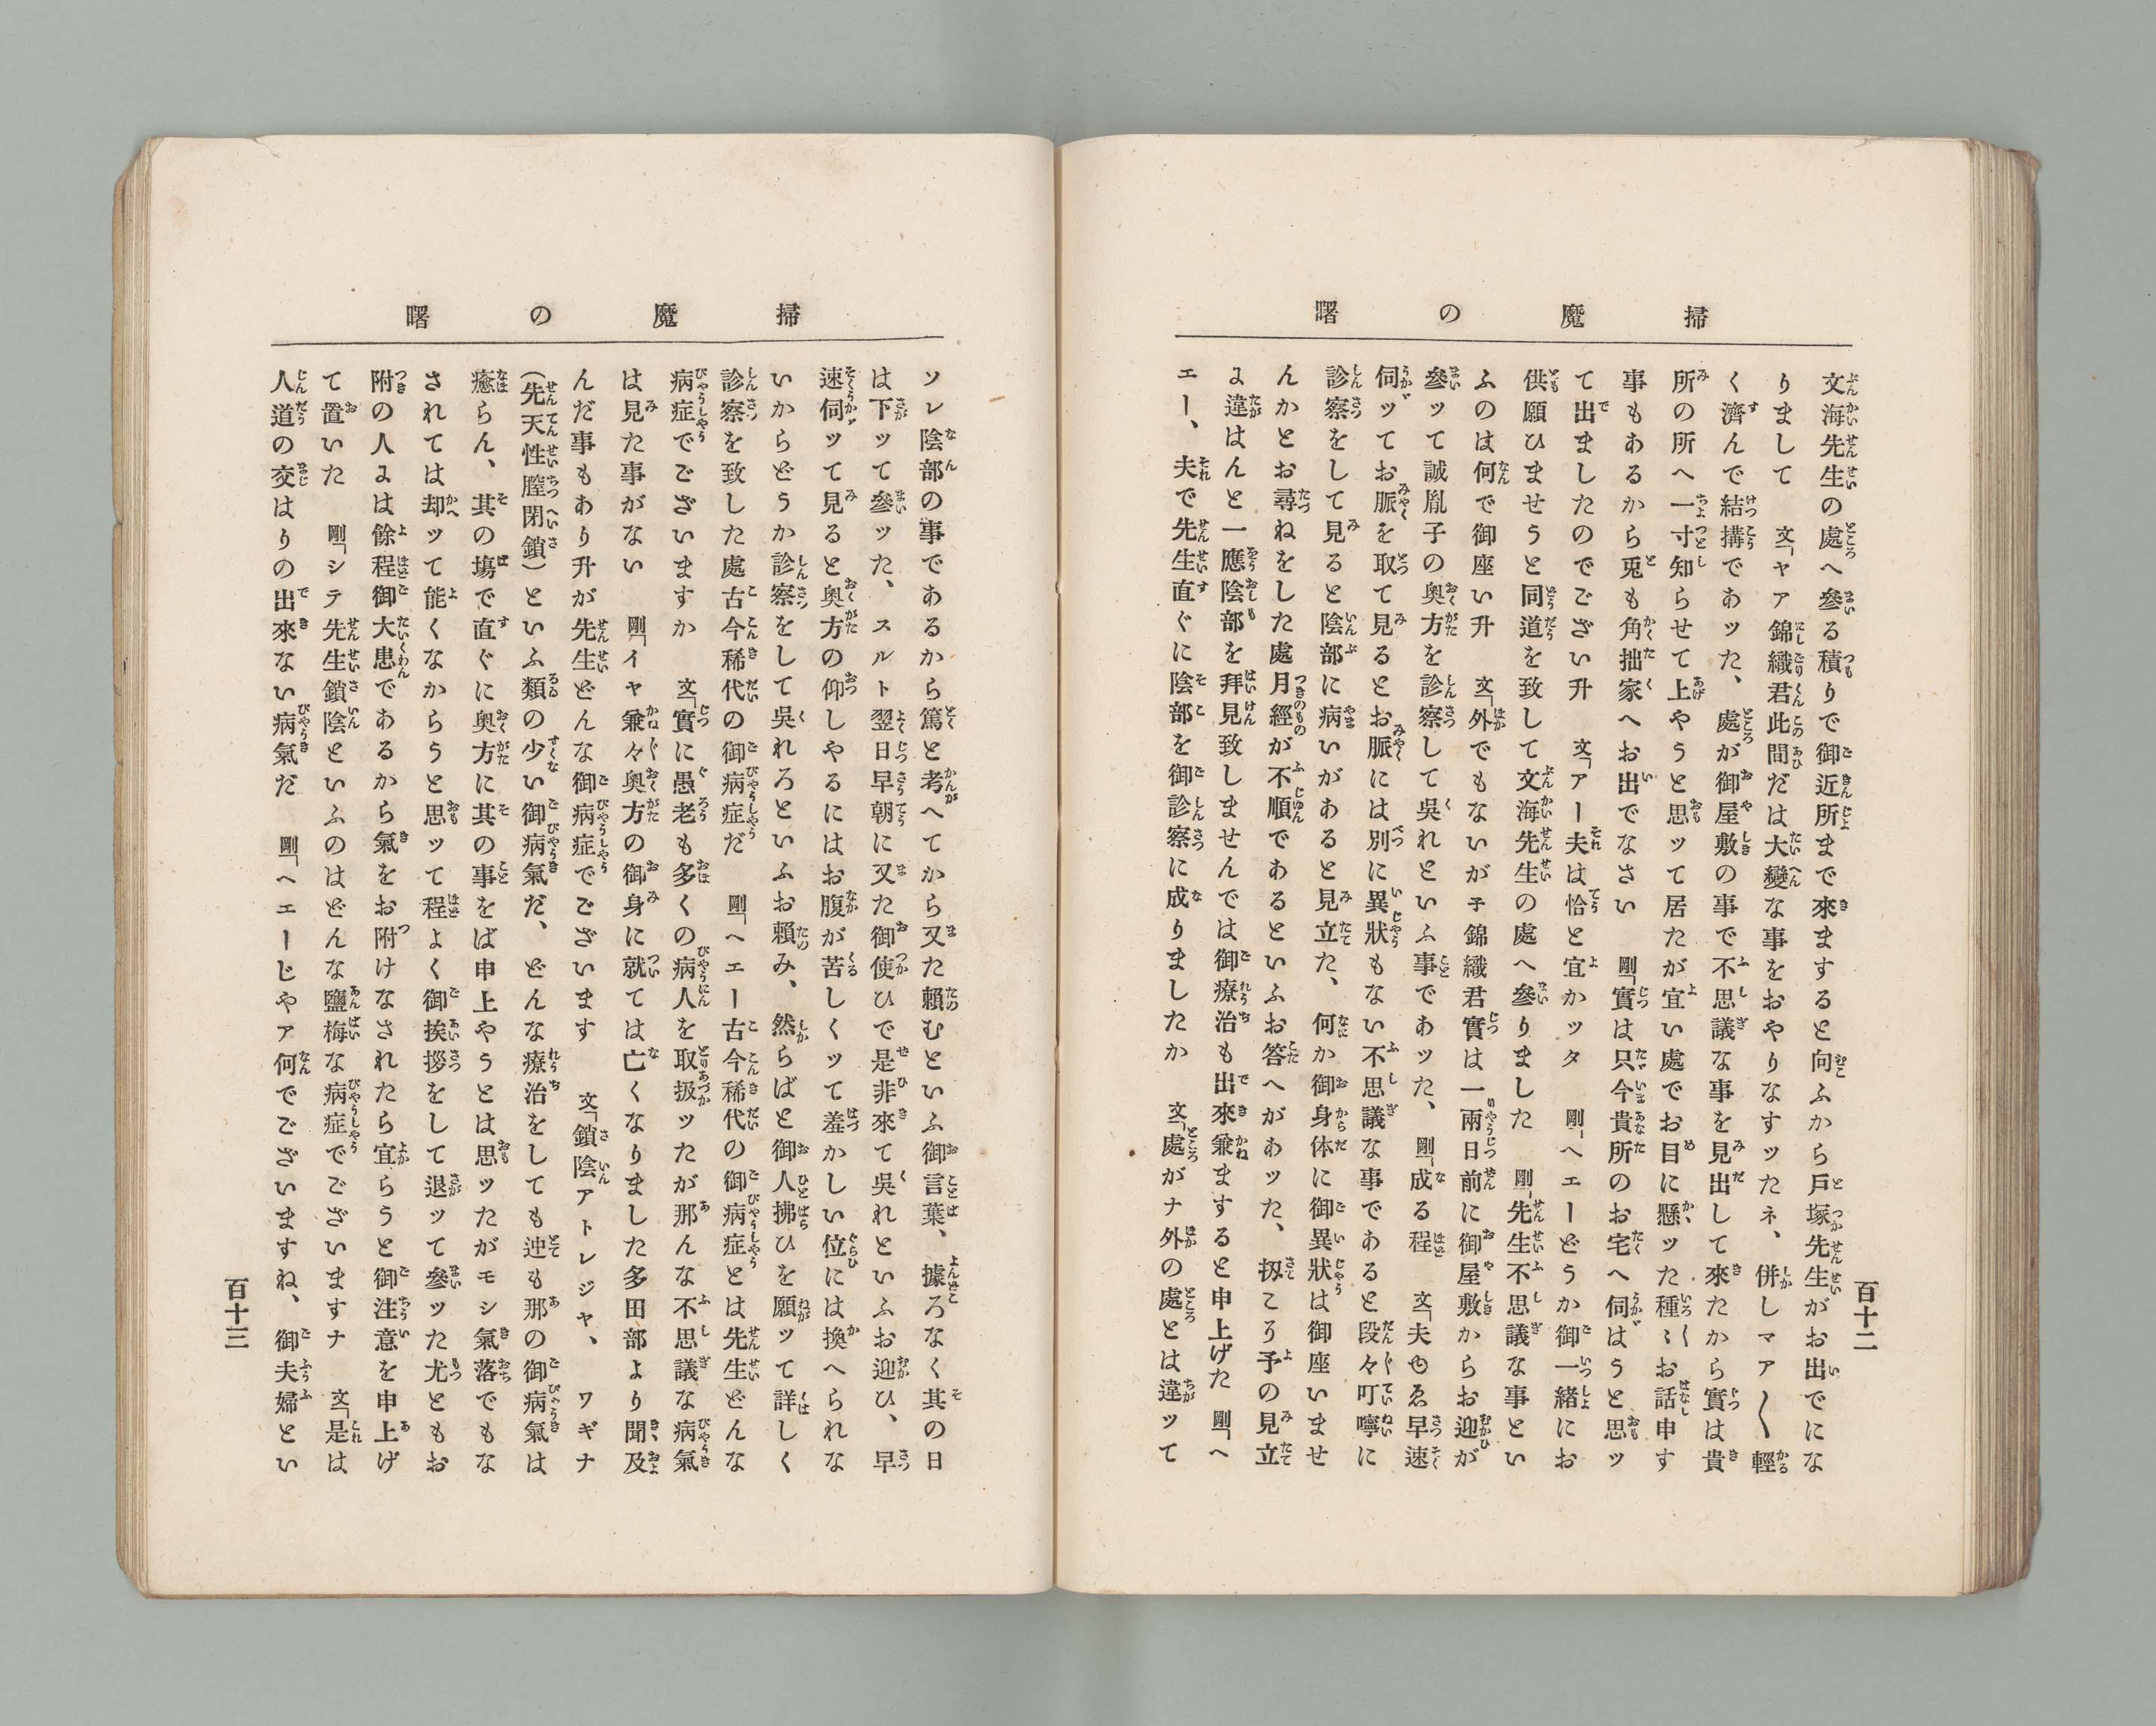 掃魔の曙
百十二
文海先生の處へ參る積りで御近所まで來ますると向ふから戸塚先生がお出でにな
りまして　文「ヤア錦織君此間だは大變な事をおやりなすッたネ、併しマア〱輕
く濟んで結搆であッた、處が御屋敷の事で不思議な事を見出して來たから實は貴
所の所へ一寸知らせて上やうと思ッて居たが宜い處でお目に懸ッた種〻お話申す
事もあるから兎も角拙家へお出でなさい　剛「實は只今貴所のお宅へ伺はうと思ッ
て出ましたのでござい升　文「アー夫は恰と宜かッタ　剛「ヘエーどうか御一緒にお
供願ひませうと同道を致して文海先生の處へ參りました　剛「先生不思議な事とい
ふのは何で御座い升　文「外でもないが子錦織君實は一兩日前に御屋敷からお迎が
參ッて誠胤子の奥方を診察して吳れといふ事であッた、　剛「成る程　文「夫ゆゑ早速
伺ッてお脈を取て見るとお脈には別に異狀もない不思議な事であると段々叮嚀に
診察をして見ると陰部に病いがあると見立た、何か御身体に御異狀は御座いませ
んかとお尋ねをした處月經が不順であるといふお答へがあッた、扨こそ予の見立
に違はんと一應陰部を拜見致しませんでは御療治も出來兼ますると申上げた　剛「ヘ
エー、夫で先生直ぐに陰部を御診察に成りましたか　文「處がナ外の處とは違ッて
掃魔の曙
ソレ陰部の事であるから篤と考へてから又た賴むといふ御言葉、據ろなく其の日
は下ッて參ッた、スルト翌日早朝に又た御使ひで是非來て吳れといふお迎ひ、早
速伺ッて見ると奥方の仰しやるにはお腹が苦しくッて羞かしい位には換へられな
いからどうか診察をして吳れろといふお賴み、然らばと御人拂ひを願ッて詳しく
診察を致した處古今稀代の御病症だ　剛「ヘエー古今稀代の御病症とは先生どんな
病症でございますか　文「實に愚老も多くの病人を取扱ッたが那んな不思議な病氣
は見た事がない　剛「イヤ兼々奥方の御身に就ては亡くなりました多田部より聞及
んだ事もあり升が先生どんな御病症でございます　文「鎖陰アトレジヤ、ワギナ
(先天性膣閉鎖)といふ類の少い御病氣だ、どんな療治をしても迚も那の御病氣は
癒らん、其の塲で直ぐに奥方に其の事をば申上やうとは思ッたがモシ氣落でもな
されては却ッて能くなからうと思ッて程よく御挨拶をして退ッて參ッた尤ともお
附の人には餘程御大患であるから氣をお附けなされたら宜らうと御注意を申上げ
て置いた　剛「シテ先生鎖陰といふのはどんな鹽梅な病症でございますナ　文「是は
人道の交はりの出來ない病氣だ　剛「ヘエーじやア何でございますね、御夫婦とい
百十三